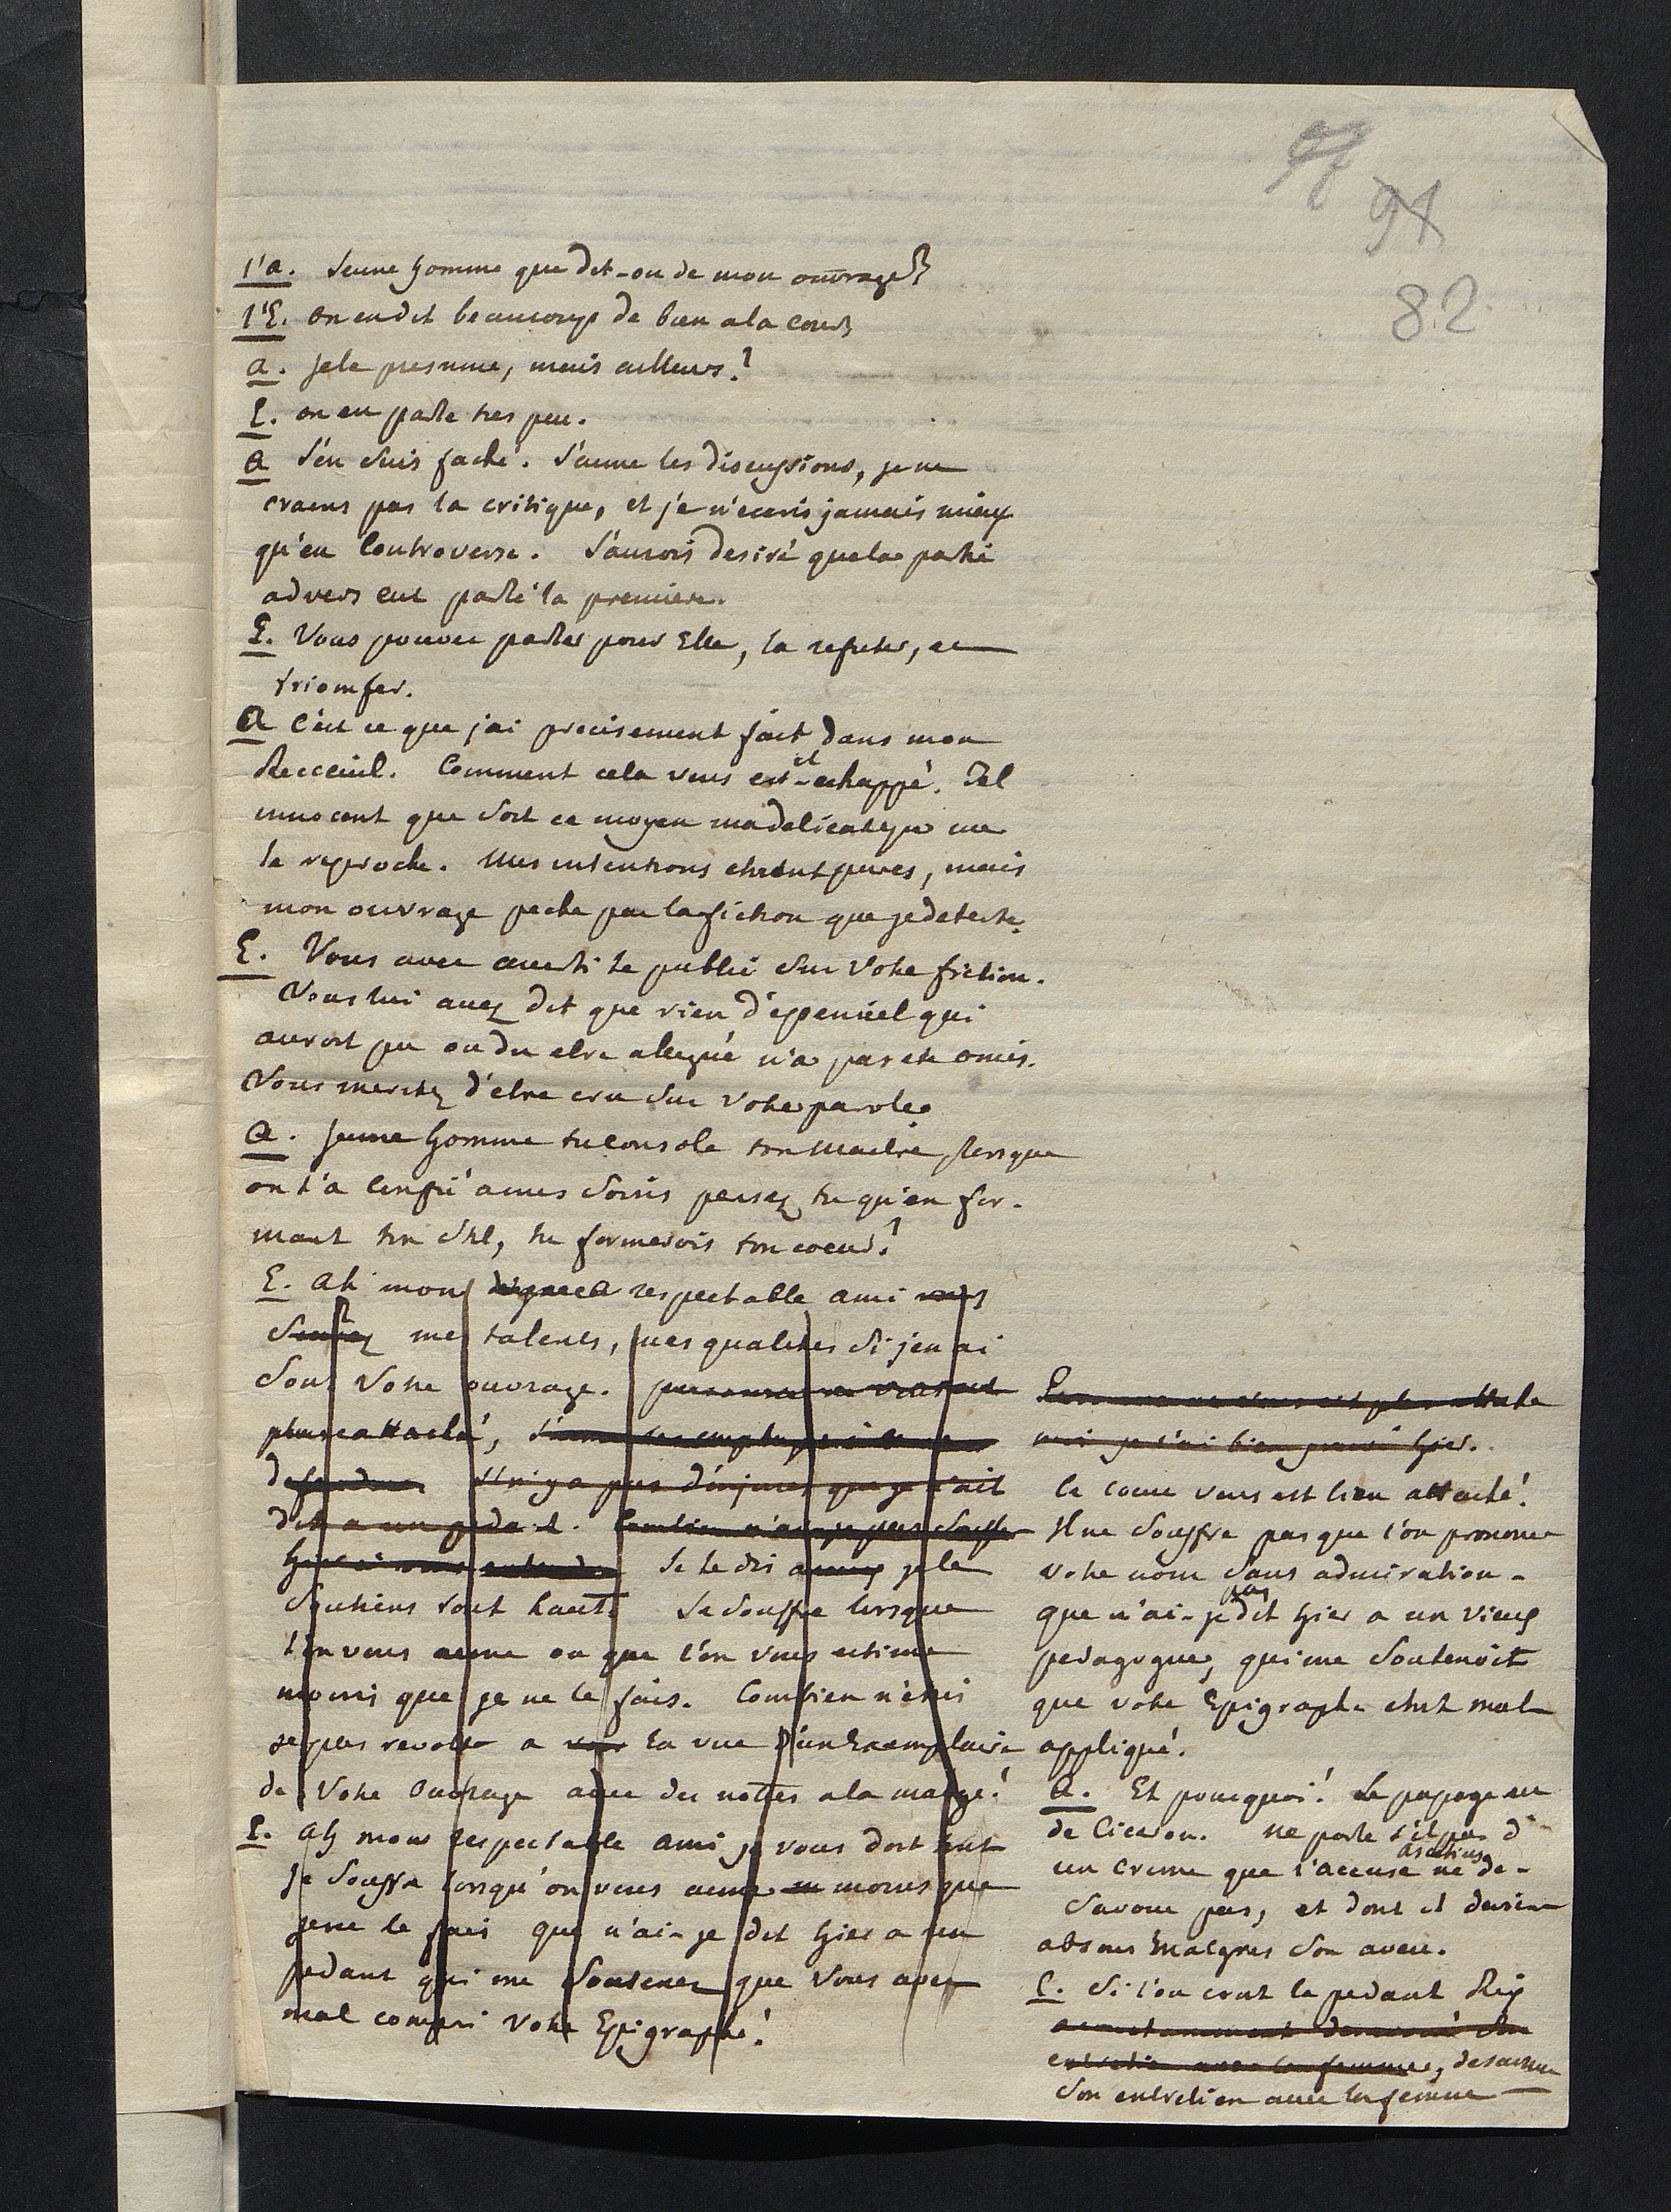 97
91
82
l'a. Jeune homme que dit-on de mon ouvrage?
l'E. on en dit beaucoup de bien a la cour
a. je le presume, mais ailleurs?
E. on en parle tres peu.
a J'en suis faché. J'aime les discussions, je ne
crains pas la critique, et je n'ecris jamais mieux
qu'en Controverse. J'aurois desiré que la partie
advers eut parlé la premiere.
E. Vous pouvez parler pour Elle, la refuter, et
triomfer.
a C'est ce que j'ai precisement fait dans mon
Receeuil. Comment cela vous est-il echappé. Tel
innocent que soit ce moyen ma delicatesse me
le reproche. Mes intentions etoient pures, mais
mon ouvrage peche par la fiction que je deteste.
E. Vous avez averti le public sur votre fiction.
Vous lui avez dit que rien d'essentiel qui
auroit pu ou du etre allegué n'a pas ete omis.
Vous meritez d'etre cru sur votre parole.
a. jeune homme tu console ton Maitre, lorsque
on t'a confié a mes soins pensez tu qu'en for-
mant ton stil, tu formerois ton coeur?
E. ah mon respectable ami
mes talens, mes qualites si j'en ai
sont Votre ouvrage. personne ne vous est
plus attaché,
defendre il n'y a pas d'injures que je n'ait
dit a un pedant. Combien n'ai je pas souffer
Je le dis je le
soutiens tout haut. Je souffre lorsque
l'on vous aime ou que l'on vous estime
moins que je ne le fais. Combien n'etois
je pas revolté a voir la vue d'un Exemplaire
de Votre Ouvrage avec des nottes a la marge!
E. ah mon respectable ami je vous doit tout
Je souffre lorsqu'on vous aime moins que
je ne le fais que n'ai-je dit hier a un
pedant qui me soutenez que Vous avez
mal compri Votre Epigraphe!
Personne ne vous est plus attaché
moi je l'ai bien prouvé hier.
le coeur vous est bien attaché.
Il ne souffre pas que l'on prononce
votre nom sans admiration-
que n'ai-je pas dit hier a un vieux
pedagogue, qui me soutenoit
que votre Epigraphe etoit mal
appliqué.
a. Et pourquoi! Le passage est
de Ciceron. ne parle t'il pas d'
un crime que l'accuse ne de-
savoue pas, et dont il desire
absous malgres son aveu.
E. Si l'on croit le pedant
son
entretien avec la femme, desavoue
son entretien avec la femme